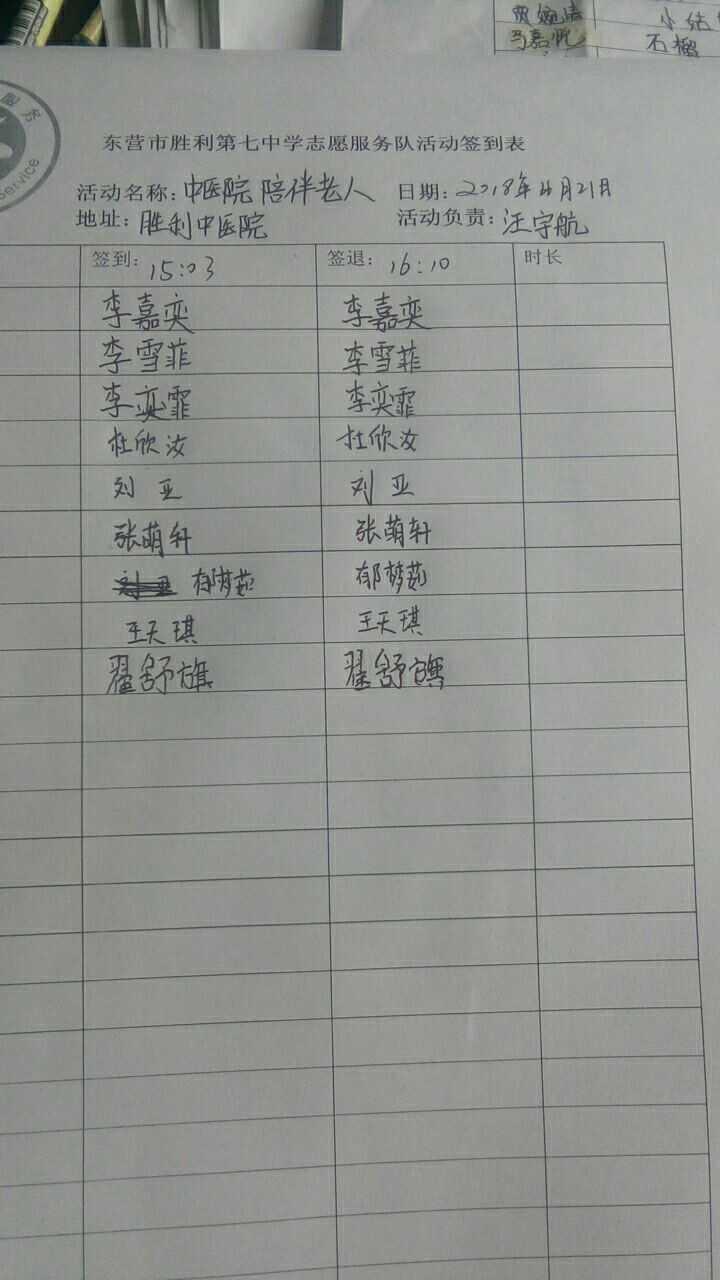 小结
石榴
服务
Service
东营市胜利第七中学志愿服务队活动签到表
活动名称:中医院 陪伴老人 日期:2018年4月21日
地址:胜利中医院 活动负责:汪宇航
签到:15:03 签退:16:10 时长
李嘉奕 李嘉奕
李雪菲 李雪菲
李奕霏 李奕霏
杜欣汝 杜欣汝
刘亚 刘亚
张萌轩 张萌轩
刘亚 郁梦茹 郁梦茹
王天琪 王天琪
翟舒旗 翟舒旗